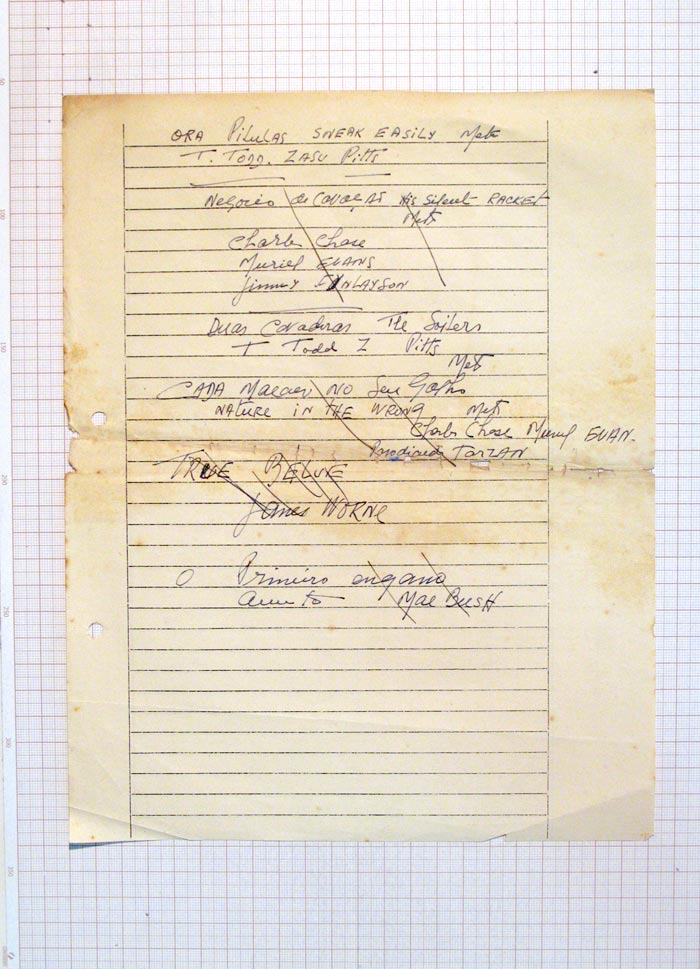 ORA Pilulas SNEAK EASILY Metro
T. TODD. ZASU Pitts
Negocio de His Silent RACKET
Metro
Charles Chase
Muriel EVANS
Jimmy FINLAYSON
Duas The Soilers
T Todd Z Pitts
Metro
CADA Macaco NO Seu Galho
NATURE IN THE WRONG Metro
Charles Chase Muriel EVAN.
TARZAN
TRUE
James
O Primeiro engano
Mae BUSH